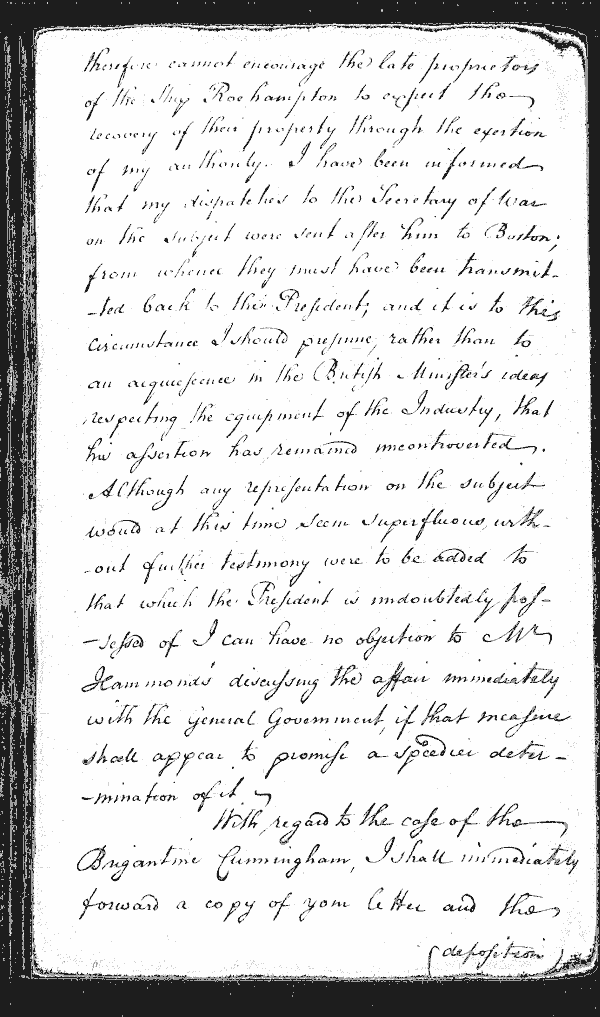 therefore cannot encourage the late proprietors
of the Ship Roehampton to expect the
recovery of their property through the exertion
of my authority. I have been informed
that my dispatches to the Secretary of War
on the subject were sent after him to Boston;
from whence they must have been transmit-
-ted back to the President; and it is to this
circumstance I should presume, rather than to
an acquiescence in the British Minister's ideas
respecting the equipment of the Industry, that
his assertion has remained uncontroverted.
Although any representation on the subject
would at this time seem superfluous, with-
-out further testimony were to be added to
that which the President is undoubtedly pos-
-sessed of I can have no objection to Mr
Hammond's discussing the affair immediately
with the General Government, if that measure
shall appear to promise a speedier deter-
-mination of it
With regard to the case of the
Brigantine Cunningham, I shall immediately
forward a copy of your letter and the
(deposition)